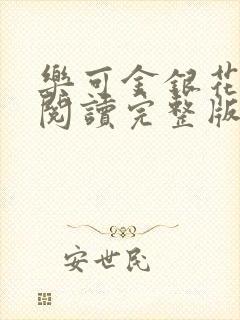 樂可金銀花
閱讀完整版
安世民